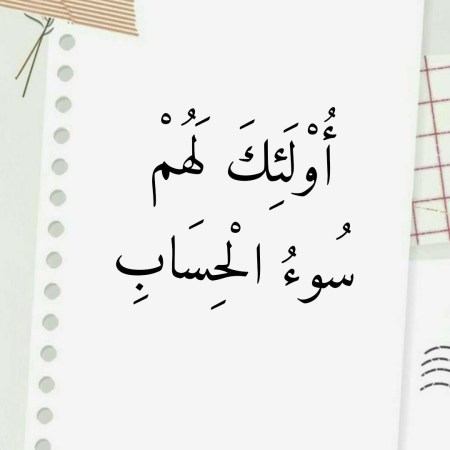 أُوْلَئِكَ لَهُمْ
سُوءُ الْحِسَابِ